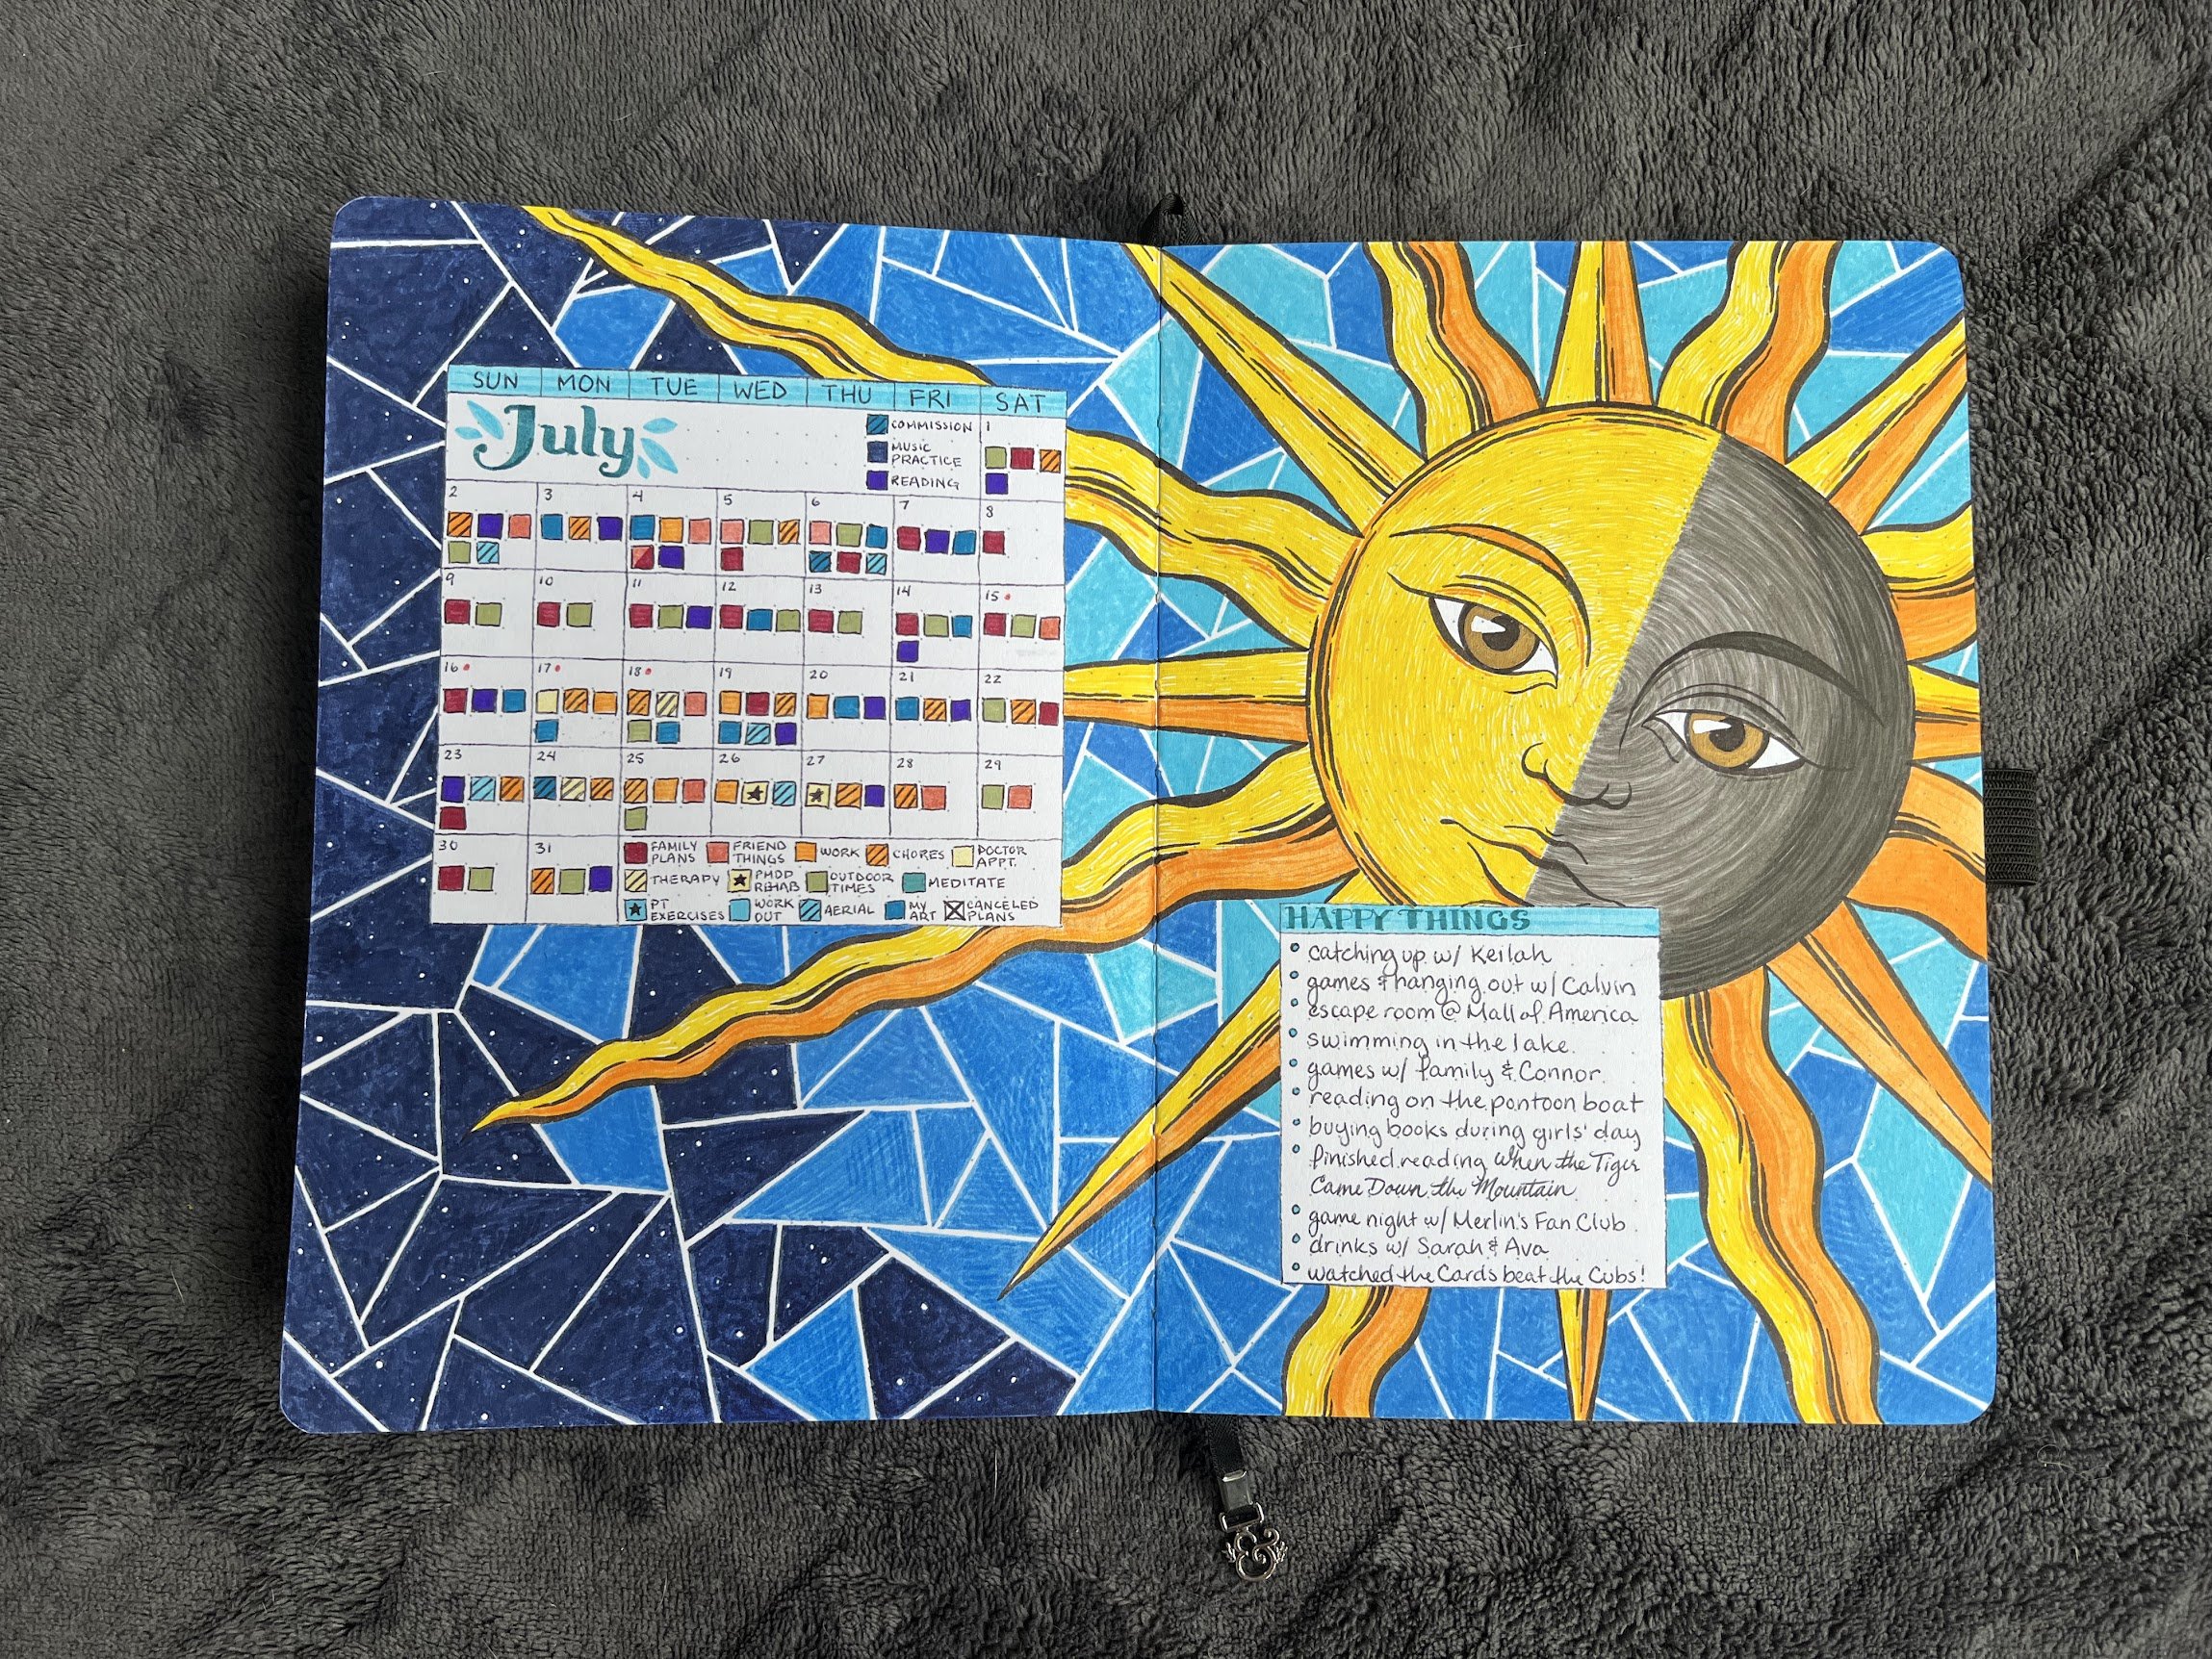 SUN MON TUE WED THU FRI SAT
July
COMMISSION
MUSIC
PRACTICE
READING
1
2 3 4 5 6 7 8
9 10 11 12 13 14 15
16 17 18 19 20 21 22
23 24 25 26 27 28 29
30 31
FAMILY
PLANS
FRIEND
THINGS
WORK
CHORES
DOCTOR
APPT.
THERAPY
PMDD
REHAB
OUTDOOR
TIMES
MEDITATE
PT
EXERCISES
WORK
OUT
AERIAL
MY
ART
CANCELED
PLANS
HAPPY THINGS
• catching up w/ Keilah
• games & hanging out w/ Calvin
• escape room @ Mall of America
• swimming in the lake
• games w/ family & Connor
• reading on the pontoon boat
• buying books during girls' day
• finished reading When the Tiger
Came Down the Mountain
• game night w/ Merlin's Fan Club
• drinks w/ Sarah & Ava
• watched the Cards beat the Cubs!